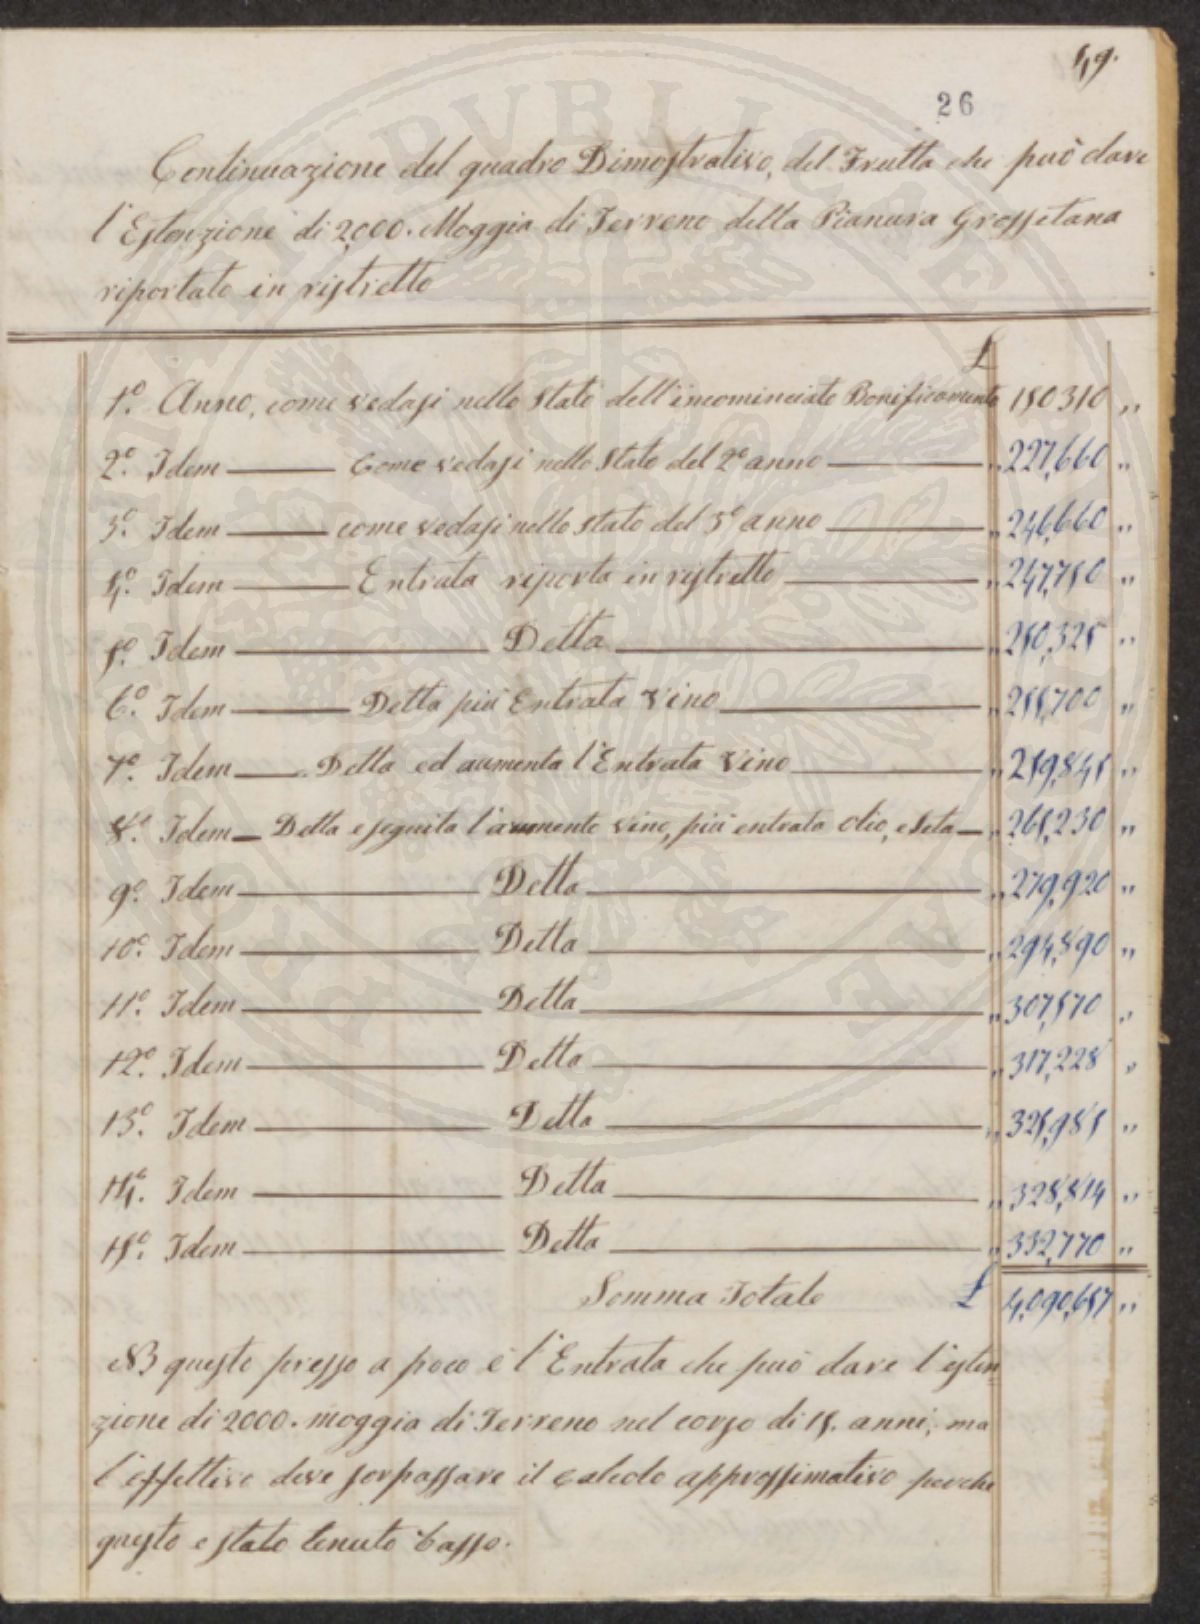 49.
26
PVBLICAE
Continuazione del quadro Dimostrativo, del Frutta che può dare
l'Estenzione di 2,000. Moggia di Terreno della Pianura Grossetana
riportato in ristretto
£
1º. Anno, come vedasi nello stato dell'incominciato Bonificamento 150310 „
2º. Idem — Come vedasi nello Stato del 2º anno — „ 227,660 „
3º. Idem — come vedasi nello stato del 3º anno — „ 246,660 „
4º. Idem — Entrata riporta in ristretto — „ 247,750 „
5º. Idem — Detta — „ 250,325 „
6º. Idem — Detta più Entrata Vino — „ 255,700 „
7º. Idem — Detta ed aumenta l'Entrata Vino — „ 259,845 „
8º. Idem — Detta e seguita l'aumento vino, più entrata olio, e Seta — „ 265,230 „
9º. Idem — Detta — „ 279,920 „
10º. Idem — Detta — „ 294,890 „
11º. Idem — Detta — „ 307,570 „
12º. Idem — Detta — „ 317,228 „
13º. Idem — Detta — „ 325,985 „
14º. Idem — Detta — „ 328,814 „
15º. Idem — Detta — „ 332,770 „
Somma Totale £ 4,090,657 „
NB questo presso a poco è l'Entrata che può dare l'esten=
zione di 2000. moggia di Terreno nel corso di 15. anni, ma
l'effettivo deve sorpassare il calcolo approssimativo perche
questo e stato tenuto basso.